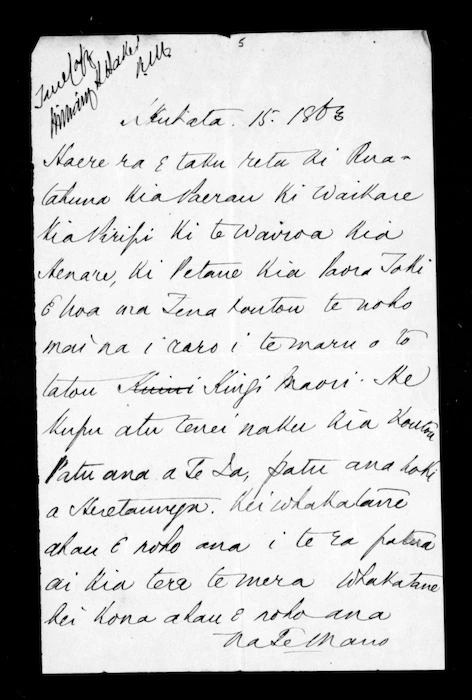 5
True Copy
Hakata. 15. 1863
Haere ra E taku reta ki Rua-
tahuna Kia Paerau ki Waikare
Kia Piripi ki te Wairoa Kia
Henare, ki Petane Kia Paora Toki
E hoa ma Tena koutou te noho
mai na i raro i te maru o to
tatou Kuini Kingi Maori. He
kupu atu tenei naku kia koutou
Patu ana a Te Ia, patu ana hoki
a Heretaunga. Kei Whakatane
ahau E noho ana i te ra patua
ai kia tere te mera Whakatane
kei kona ahau E noho ana
na Te Mano